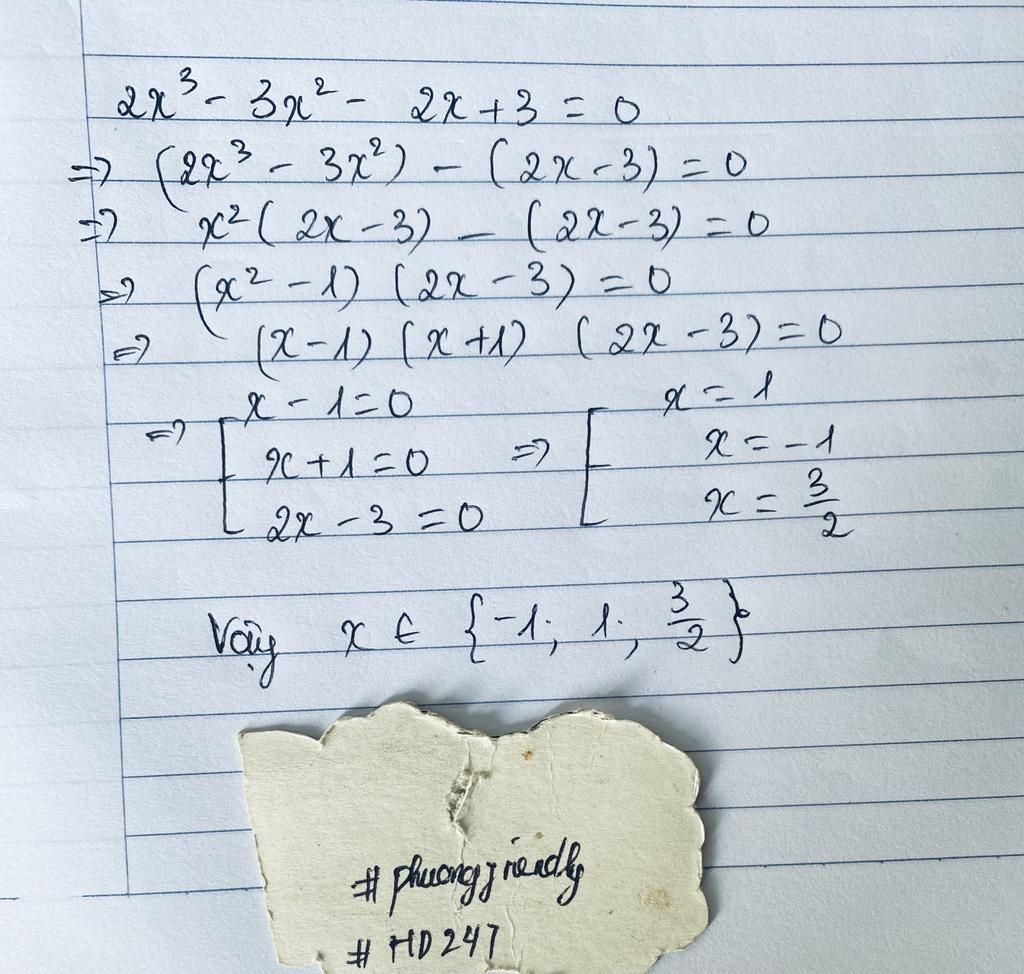 2x³ - 3x² - 2x + 3 = 0
=> (2x³ - 3x²) - (2x - 3) = 0
=> x² (2x - 3) - (2x - 3) = 0
=> (x² - 1) (2x - 3) = 0
=> (x - 1) (x + 1) (2x - 3) = 0
=> [ x - 1 = 0 => [ x = 1
x + 1 = 0 x = -1
2x - 3 = 0 x = 3/2
Vậy x ∈ {-1; 1; 3/2}
# phuongfriendly
# HD247